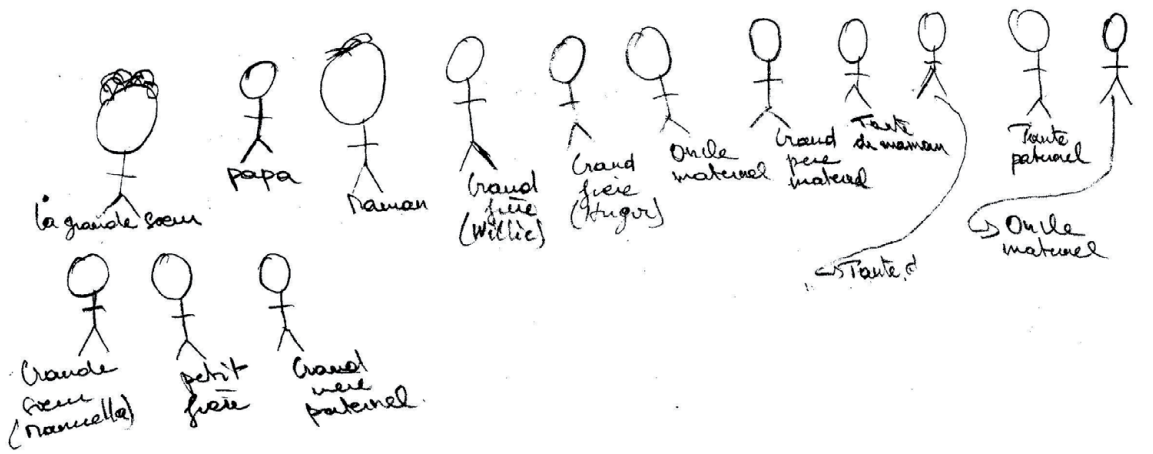 la grande sœur
papa
Maman
Grand
frère
(Willie)
Grand
frère
(Hugor)
Oncle
maternel
Grand
père
maternel
Tante
de maman
Tante
paternel
Oncle
maternel
Tante
Grande
sœur
(Manuella)
petit
frère
Grand
mère
paternel.